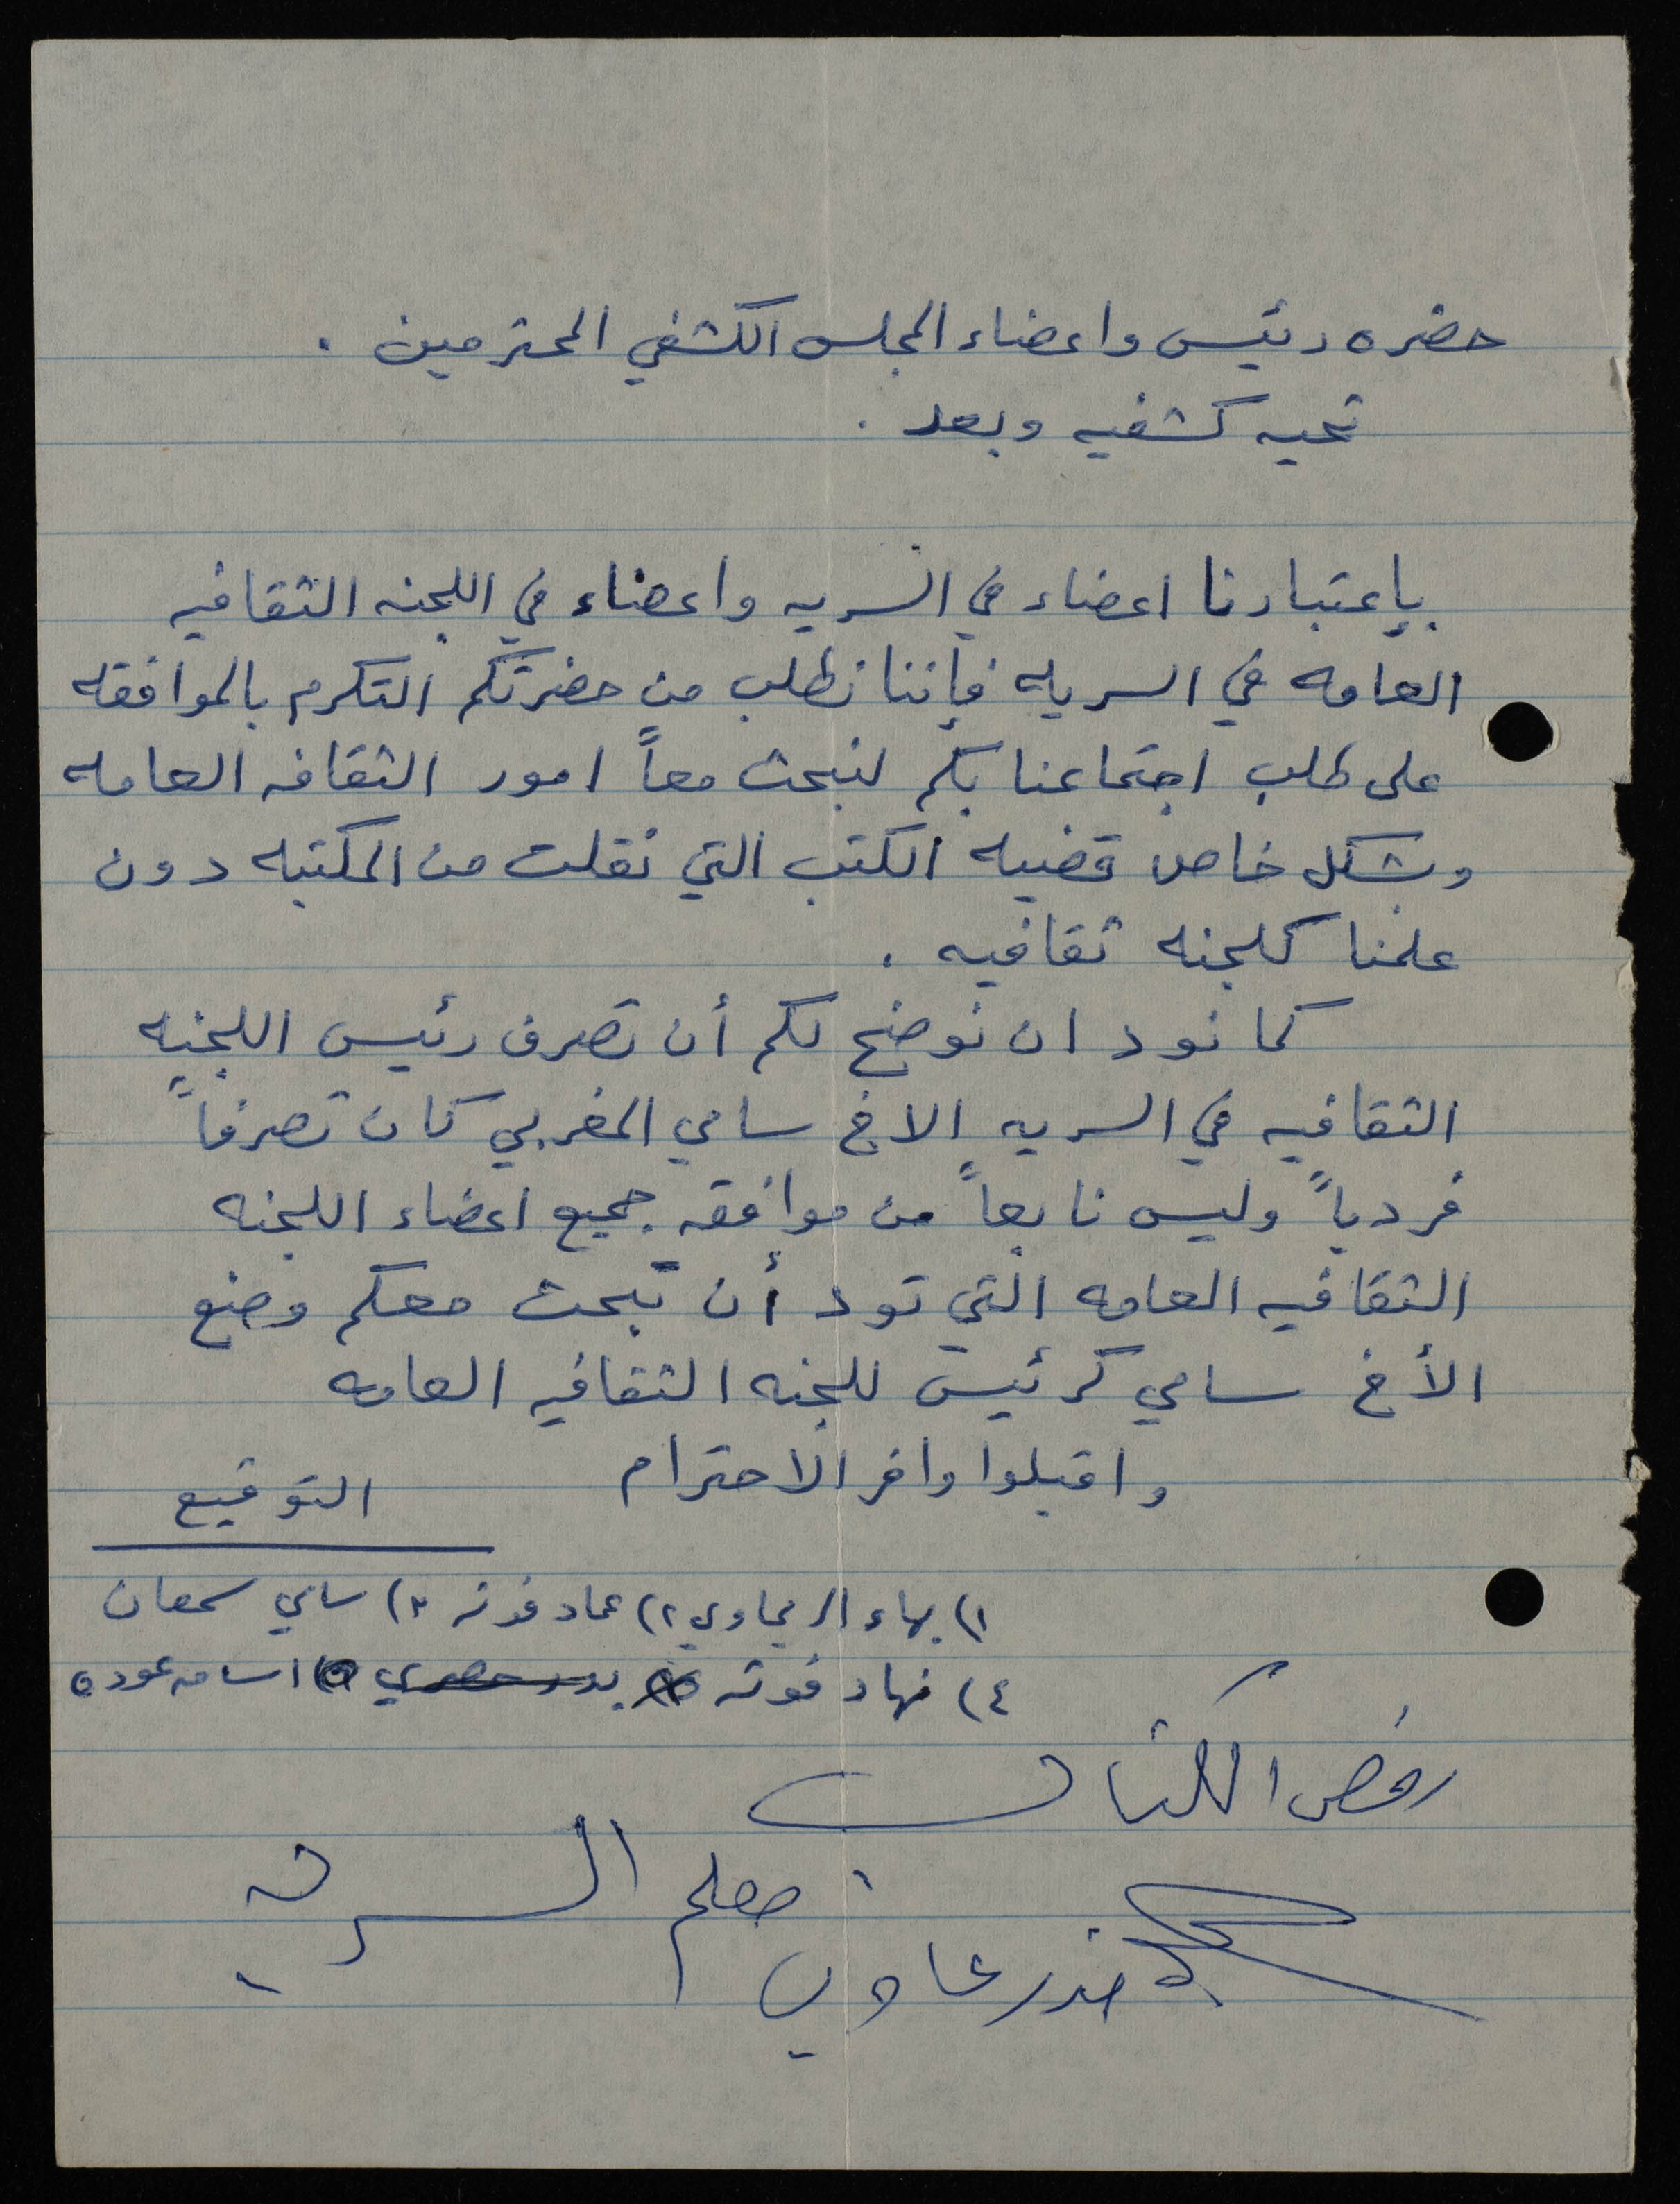 حضره رئيس واعضاء المجلس الكشفي المحترمين .
تحيه كشفيه وبعد .
بإعتبارنا اعضاء في السريه واعضاء في اللجنه الثقافيه
العامه في السريه فإننا نطلب من حضرتكم التكرم بالموافقه
على طلب اجتماعنا بكم لنبحث معاً امور الثقافه العامه
وبشكل خاص قضيه الكتب التي نقلت من المكتبه دون
علمنا كلجنه ثقافيه .
كما نود ان نوضح لكم أن تصرف رئيس اللجنه
الثقافيه في السريه الاخ سامي المغربي كان تصرفاً
فردياً وليس نابعاً من موافقه جميع اعضاء اللجنه
الثقافيه العامه التي تود أن تبحث معكم وضع
الأخ سامي كرئيس للجنه الثقافيه العامه
واقبلوا وافر الاحترام
التوقيع
١) بهاء الريماوي ٢) عماد فوته ٣) سامي سمعان
٤) نهاد فوته اسامه عوده
رفض الكتاب
معلم السرية